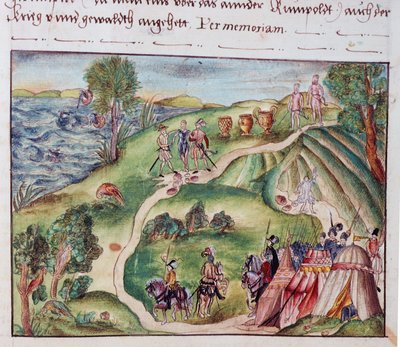 vber das annder Rumpoldt) auch der
krieg vnnd gewaldth angehett. Per memoriam.